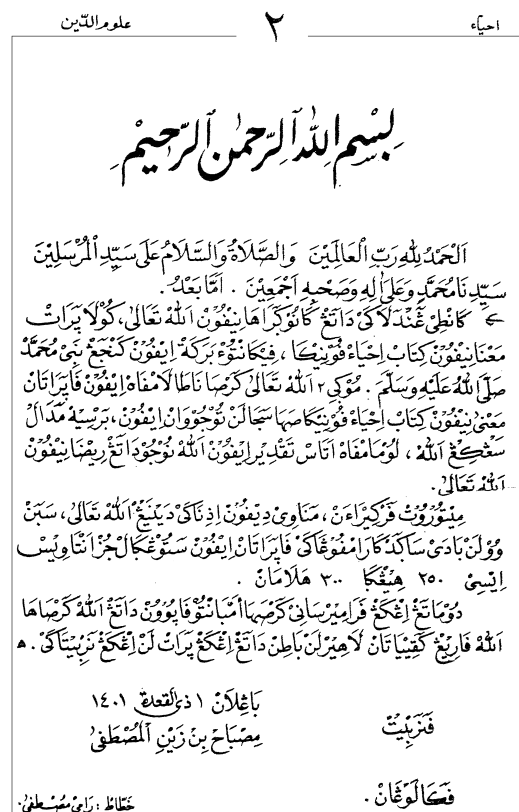 احياء ٢ علوم الدّين
بِسْمِ اللهِ الرَّحْمٰنِ الرَّحِيْمِ
اَلْحَمْدُ لِلّٰهِ رَبِّ الْعَالَمِيْنَ وَالصَّلَاةُ وَالسَّلَامُ عَلَى سَيِّدِ الْمُرْسَلِيْنَ
سَيِّدِنَا مُحَمَّدٍ وَعَلَى اٰلِهِ وَصَحْبِهِ اَجْمَعِيْنَ . اَمَّا بَعْدُ .
كانطي ڠندلاكي داتڠ كانوڬراهانيفون الله تعالى، كولا ڤراث
معنانيفون كتاب احياء فونيكا ، فيكانتوء بركة ايفون كنجڠ نبي محمد
صلى الله عليه وسلم . موڬي٢ الله تعالى كرصا ناطا لامفاه ايفون فاڤراتان
معنى نيفون كتاب احياء فونيكا صها سجالن توجووان ايفون ، برسيه مدال
سڠكڠ الله ، لوما مفاه اتاس تقدير ايفون الله نوجو داتڠ رضا نيفون
الله تعالى .
ميتوروت فركيراءن ، مناوي ديفون اذناكي ديننيڠ الله تعالى ، سبن
وولن بادي ساڬد كارامفوڠاكي فاڤراتان ايفون ستوڠڬال جزء انتاويس
ايسي ٢٥٠ هيڠڬا ٣٠٠ هلامان .
دوماتڠ اڠكڠ فراميرساني كرصها امبانتو فاڽوون داتڠ الله كرصاها
الله فاريڠ كفيياتان لاهير لن باطن داتڠ اڠكڠ ڤراث لن اڠكڠ نربيتاكي . ه
باڠيلان ١ ذي القعدة ١٤٠١
فنربيت مصباح بن زين المصطفى
فكالوڠان . خطاط : رامي مصطفى .